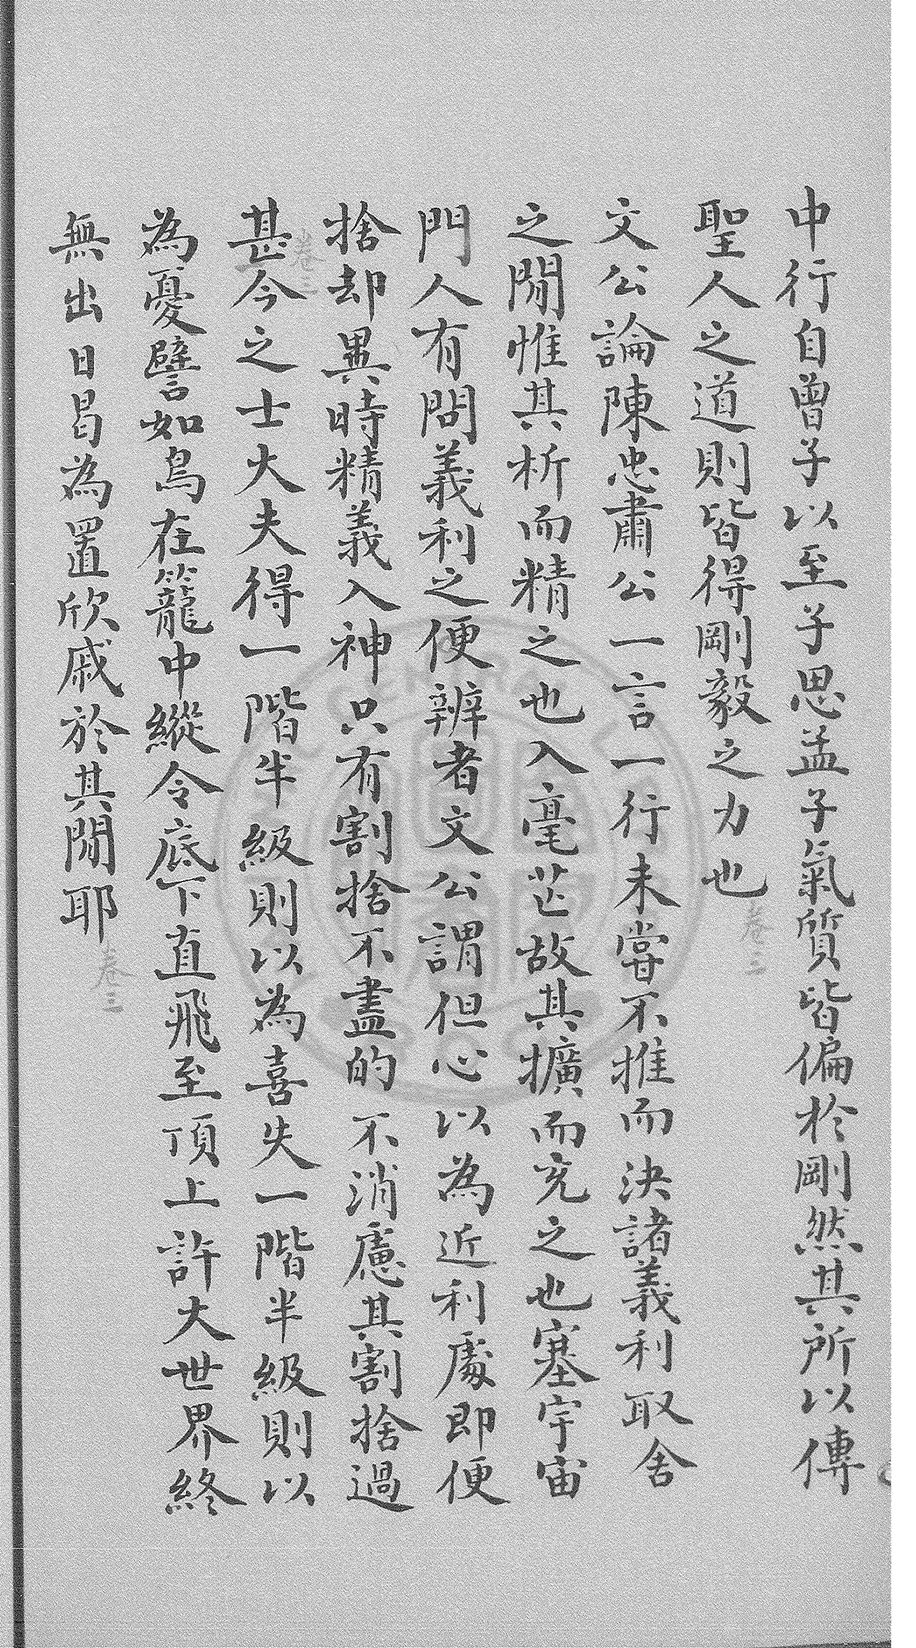 中行自曾子以至子思孟子氣質皆偏於剛然其所以傳
聖人之道則皆得剛毅之力也卷三
文公論陳忠肅公一言一行未嘗不推而決諸義利取舍
之閒惟其析而精之也入毫芒故其擴而充之也塞宇宙
門人有問義利之便辨者文公謂但心以為近利處即便
捨却異時精義入神只有割捨不盡的不消慮其割捨過
甚卷三今之士大夫得一階半級則以為喜失一階半級則以
為憂譬如鳥在籠中縱令底下直飛至頂上許大世界終
無出日曷為置欣戚於其閒耶卷三
CENTRAL